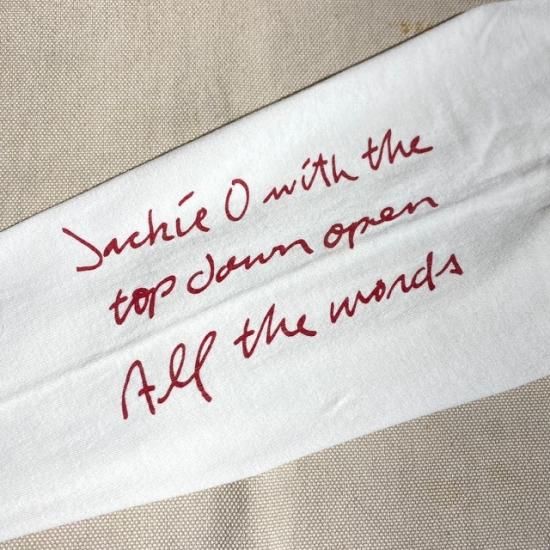 Jackie O with the
top down open
All the words